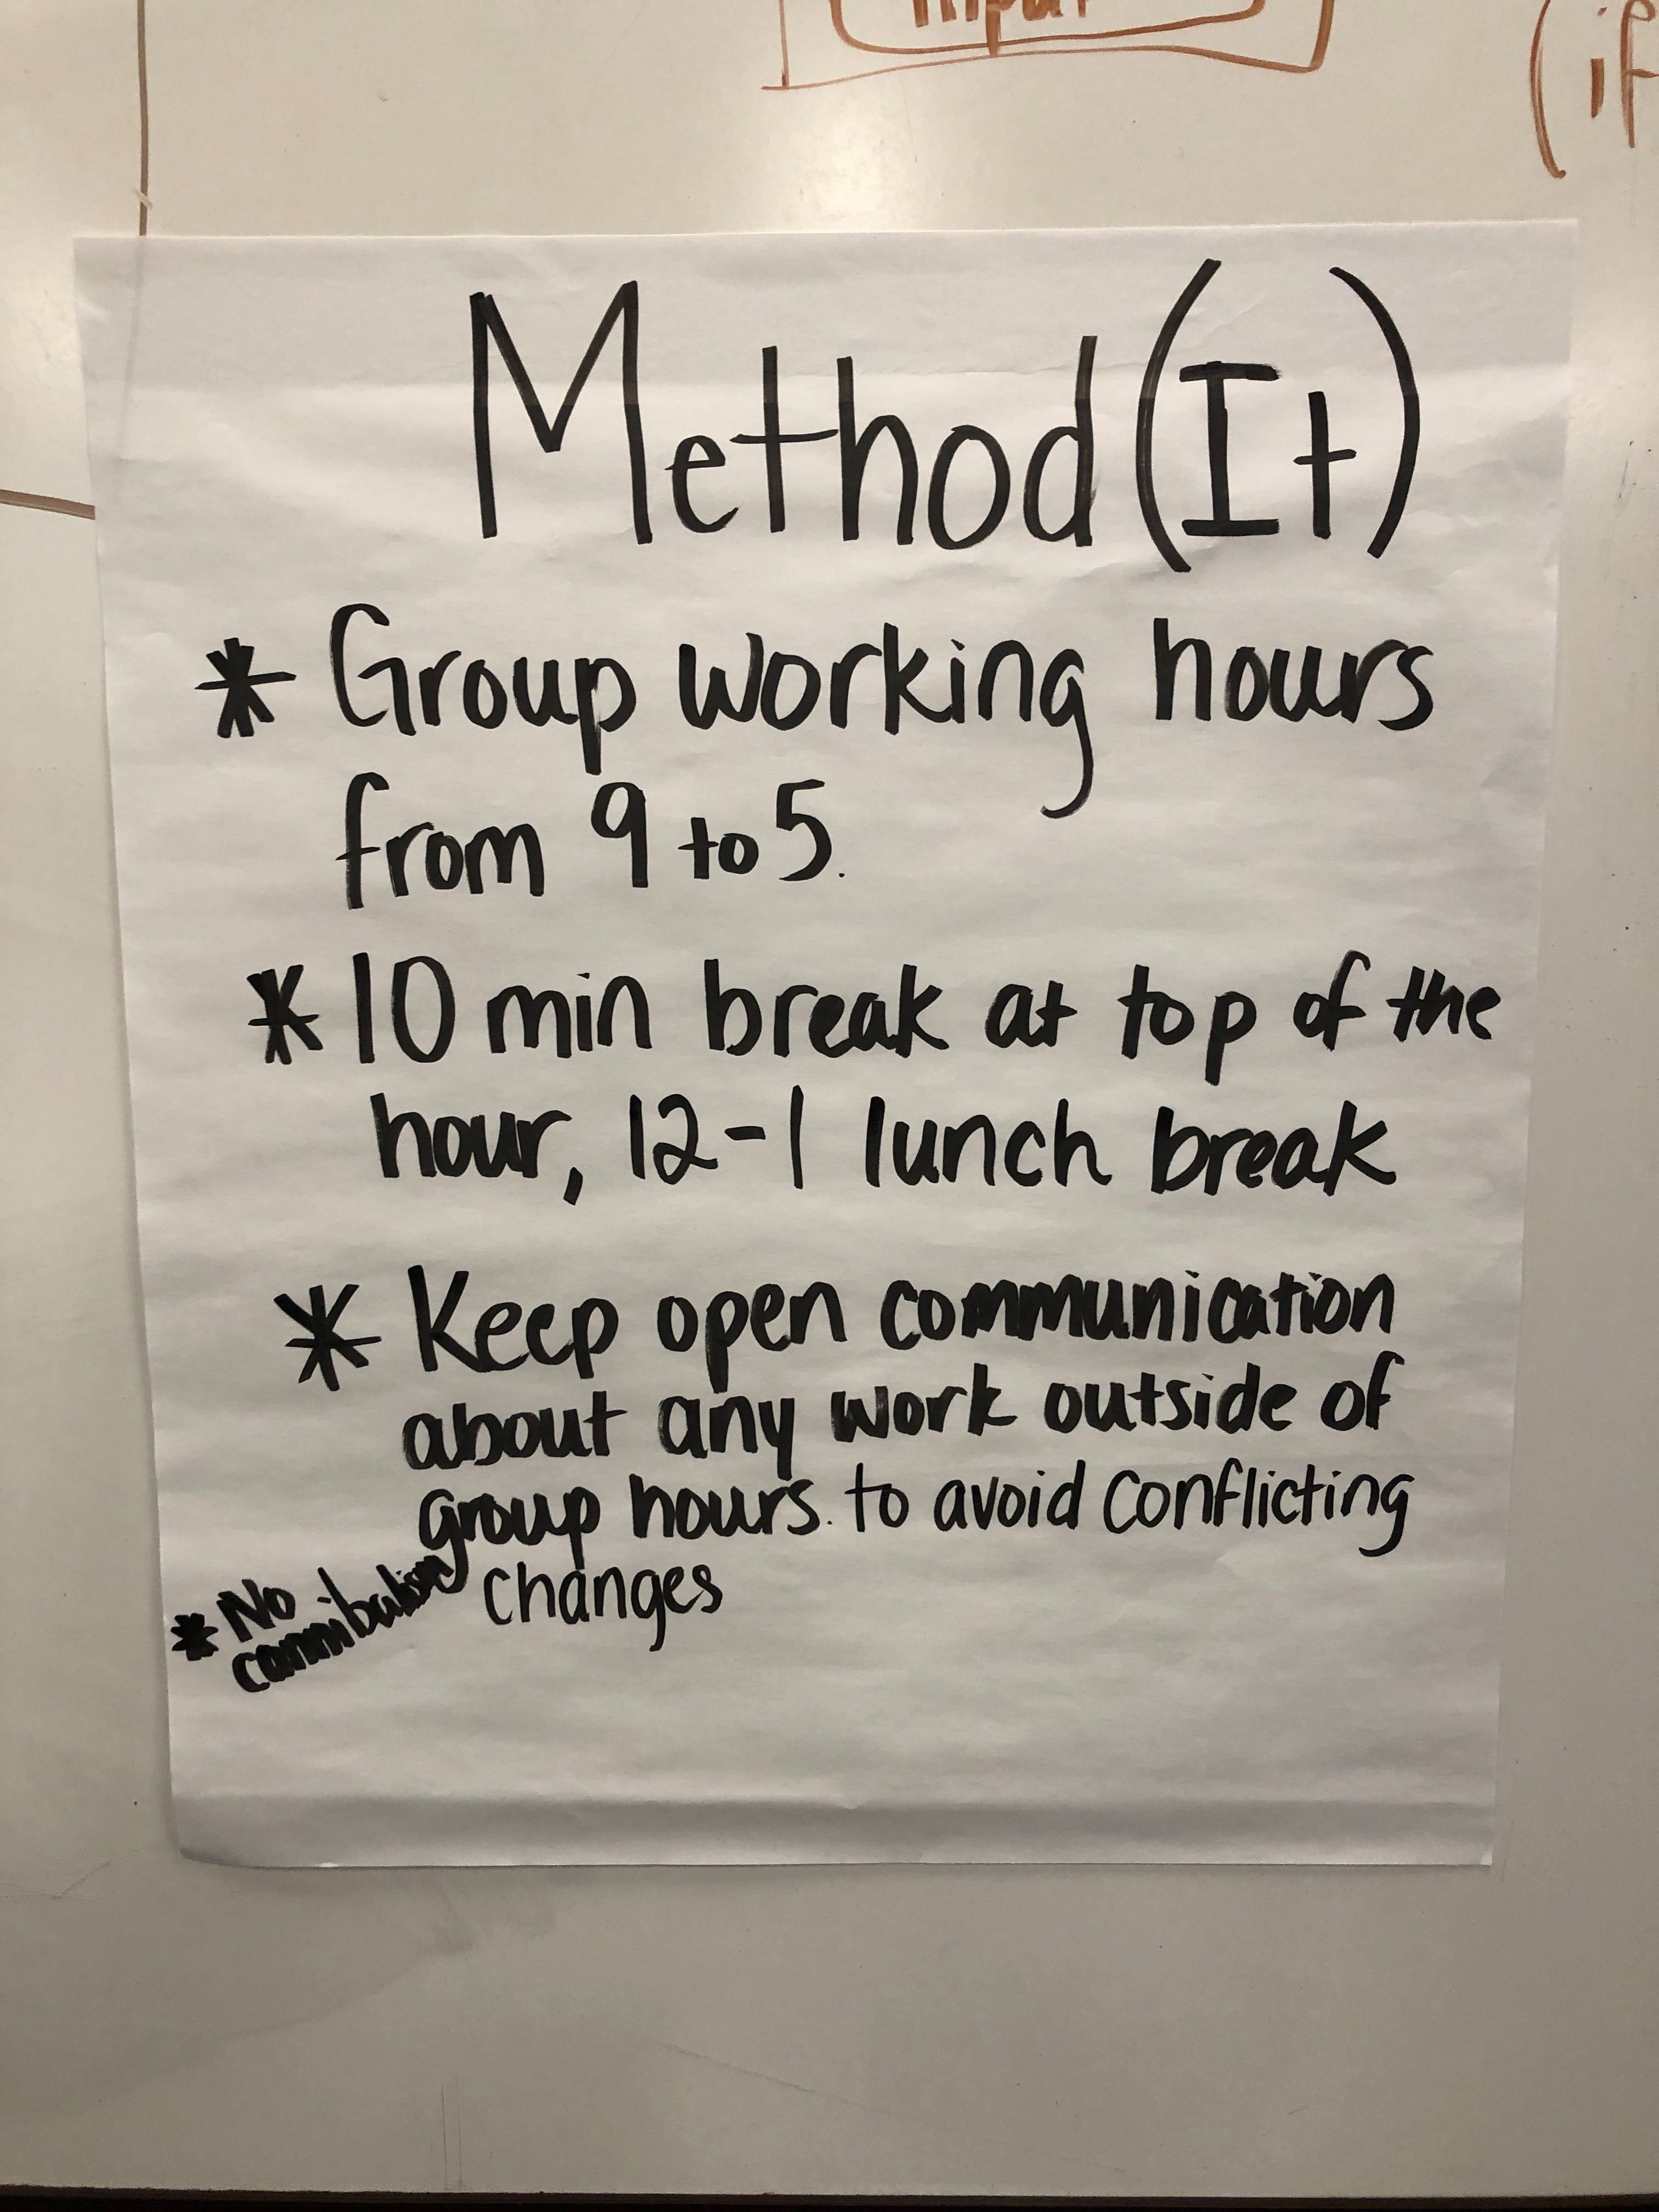 input
(if
Method(It)
* Group working hours
from 9 to 5.
* 10 min break at top of the
hour, 12-1 lunch break
* Keep open communication
about any work outside of
group hours. to avoid conflicting
changes
* No
cannibalism